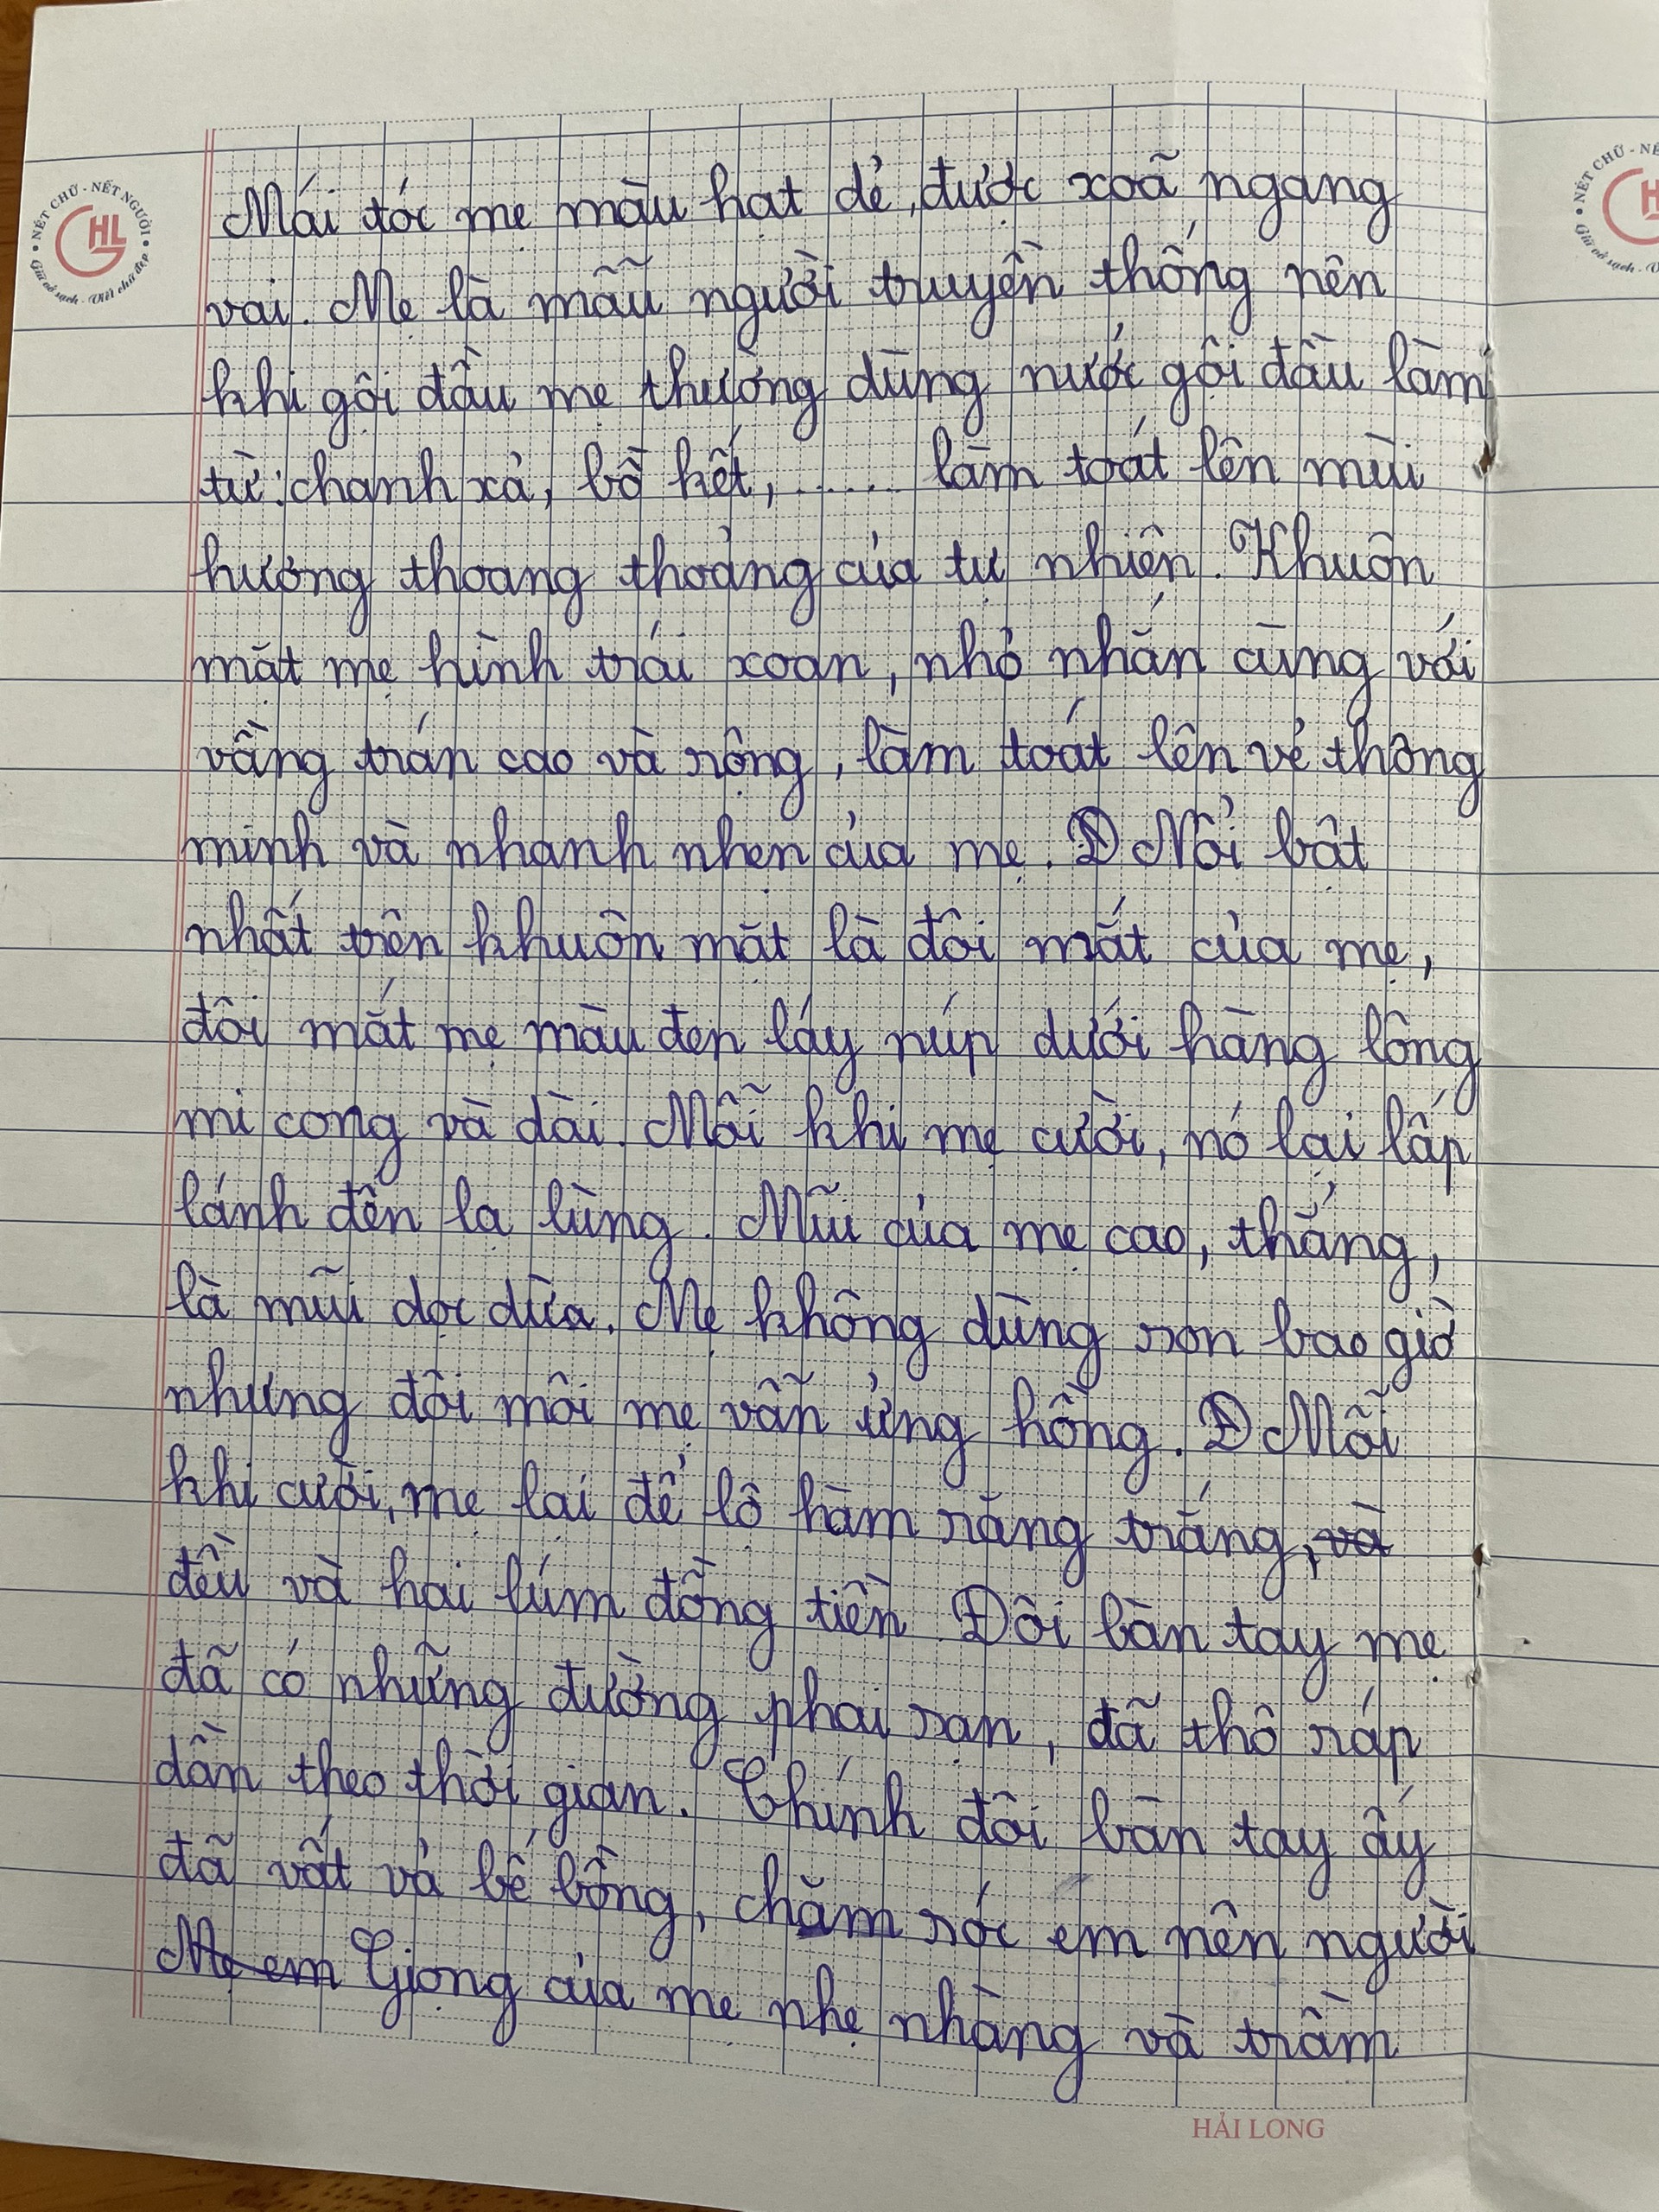 NÉT CHỮ - NẾT NGƯỜI
HL
Giữ vở sạch - Viết chữ đẹp
Mái tóc mẹ màu hạt dẻ, được xoã ngang
vai. Mẹ là mẫu người truyền thống nên
khi gội đầu mẹ thường dùng nước gội đầu làm
từ: chanh xả, bồ kết, ...... làm toát lên mùi
hương thoang thoảng của tự nhiên. Khuôn
mặt mẹ hình trái xoan, nhỏ nhắn cùng với
vầng trán cao và rộng, làm toát lên vẻ thông
minh và nhanh nhẹn của mẹ. Đ Nổi bật
nhất trên khuôn mặt là đôi mắt của mẹ,
đôi mắt mẹ màu đen láy núp dưới hàng lông
mi cong và dài. Mỗi khi mẹ cười, nó lại lấp
lánh đến lạ lùng. Mũi của mẹ cao, thẳng,
là mũi dọc dừa. Mẹ không dùng son bao giờ
nhưng đôi môi mẹ vẫn ửng hồng. Đ Mỗi
khi cười, mẹ lại để lộ hàm răng trắng, và
đều và hai lúm đồng tiền. Đôi bàn tay mẹ
đã có những đường phai sạn, đã thô ráp
dần theo thời gian. Chính đôi bàn tay ấy
đã vất vả bế bồng, chăm sóc em nên người
Mẹ em Giọng của mẹ nhẹ nhàng và trầm
HẢI LONG